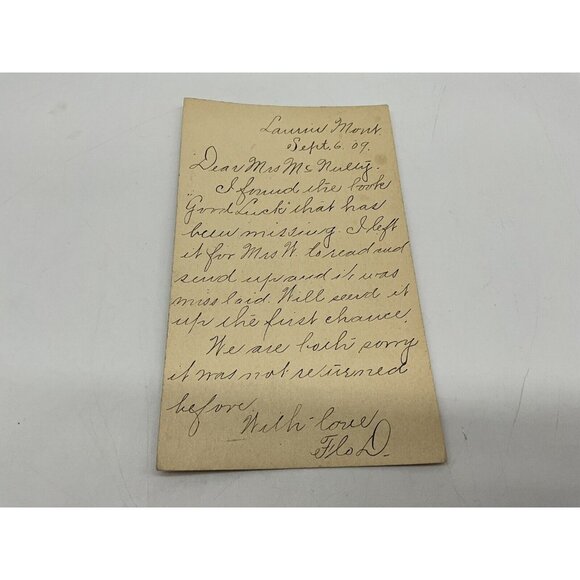 Laurin Mont
Sept. 6. 09.
Dear Mrs McNulty.
I found the book
"Good Luck" that has
been missing. I left
it for Mrs W. to read and
send up and it was
misslaid. Will send it
up the first chance.
We are both sorry
it was not returned
before.
With love
Flo D.